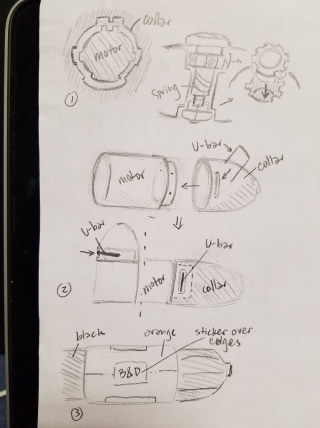 collar
motor
spring
①
U-bar
motor
collar
U-bar
U-bar
motor
collar
②
black
orange
sticker over
edges
B&D
③